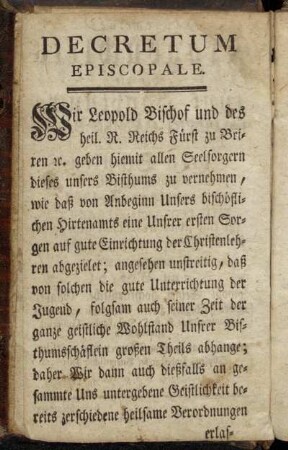 DECRETUM
EPISCOPALE.
Wir Leopold Bischof und des
heil. R. Reichs Fürst zu Bri-
xen ꝛc. geben hiemit allen Seelsorgern
dieses unsers Bisthums zu vernehmen,
wie daß von Anbeginn Unsers bischöfli-
chen Hirtenamts eine Unsrer ersten Sor-
gen auf gute Einrichtung der Christenleh-
ren abgezielet; angesehen unstreitig, daß
von solchen die gute Unterrichtung der
Jugend, folgsam auch seiner Zeit der
ganze geistliche Wohlstand Unsrer Bis-
thumsschäflein großen Theils abhange;
daher Wir dann auch dießfalls an ge-
sammte Uns untergebene Geistlichkeit be-
reits zerschiedene heilsame Verordnungen
erlas-